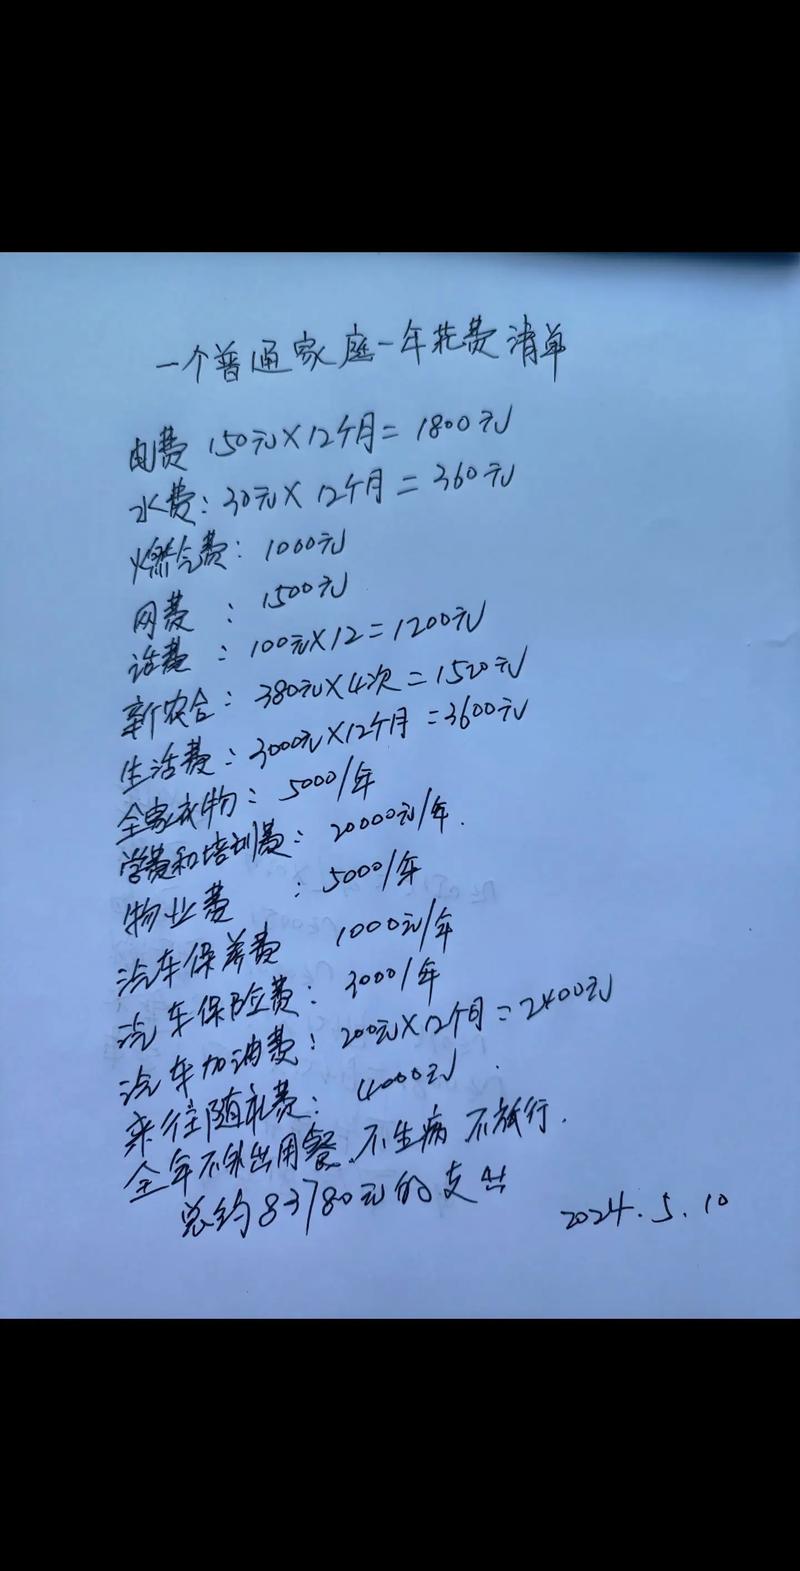 一个普通家庭一年花费清单
电费 150元×12个月=1800元
水费:30元×12个月=360元
燃气费:1000元
网费:1500元
话费:100元×12=1200元
新农合:380元×4次=1520元
生活费:3000元×12个月=3600元
全家衣物:5000/年
学费和培训费:20000元/年.
物业费:5000/年
汽车保养费 1000元/年
汽车保险费:3000/年
汽车加油费:200元×12个月=2400元
来往随礼费:4000元.
全年不外出用餐、不生病 不旅行.
总约83780元的支出
2024.5.10